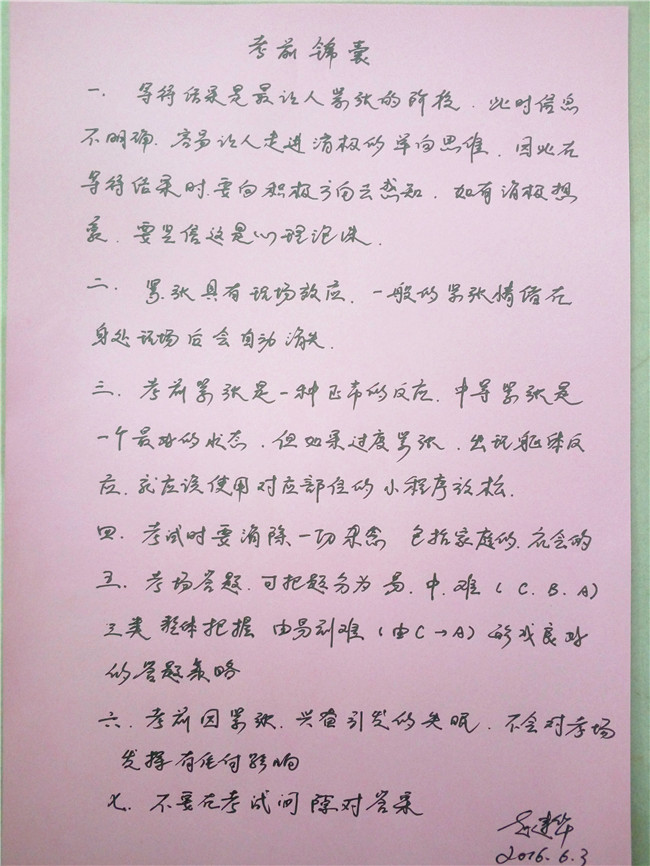 考前锦囊
一. 等待结果是最让人紧张的阶段, 此时信息
不明确. 容易让人走进消极的单向思维, 因此在
等待结果时.要向积极方向去感知, 如有消极想
象. 要坚信这是心理泡沫.
二. 紧张具有现场效应, 一般的紧张情绪在
身处现场后会自动消失.
三. 考前紧张是一种正常的反应, 中等紧张是
一个最好的状态, 但如果过度紧张, 出现躯体反
应, 就应该使用对应部位的小程序放松.
四. 考试时要消除一切杂念 包括家庭的.社会的
五. 考场答题. 可把题分为易.中.难(C.B.A)
三类 整体把握 由易到难(由C→A)形成良好
的答题策略
六. 考前因紧张.兴奋引发的失眠, 不会对考场
发挥有任何影响
七. 不要在考试间隙对答案
建华
2016.6.3